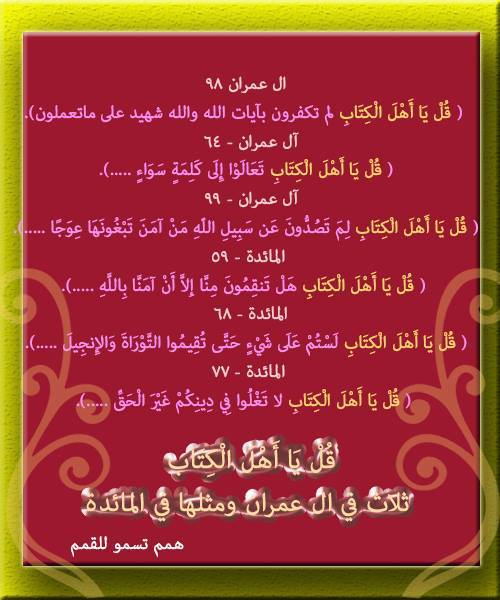 ال عمران ٩٨
( قُلْ يَا أَهْلَ الْكِتَابِ لم تكفرون بآيات الله والله شهيد على ماتعملون).
آل عمران - ٦٤
( قُلْ يَا أَهْلَ الْكِتَابِ تَعَالَوْا إِلَى كَلِمَةٍ سَوَاءٍ .....).
آل عمران - ٩٩
( قُلْ يَا أَهْلَ الْكِتَابِ لِمَ تَصُدُّونَ عَن سَبِيلِ اللّهِ مَنْ آمَنَ تَبْغُونَهَا عِوَجًا .....).
المائدة - ٥٩
( قُلْ يَا أَهْلَ الْكِتَابِ هَلْ تَنقِمُونَ مِنَّا إِلاَّ أَنْ آمَنَّا بِاللَّهِ .....).
المائدة - ٦٨
( قُلْ يَا أَهْلَ الْكِتَابِ لَسْتُمْ عَلَى شَيْءٍ حَتَّى تُقِيمُوا التَّوْرَاةَ وَالإِنجِيلَ .....).
المائدة - ٧٧
( قُلْ يَا أَهْلَ الْكِتَابِ لا تَغْلُوا فِي دِينِكُمْ غَيْرَ الْحَقِّ .....).
قُلْ يَا أَهْلَ الْكِتَابِ
ثلاث في ال عمران ومثلها في المائدة
همم تسمو للقمم